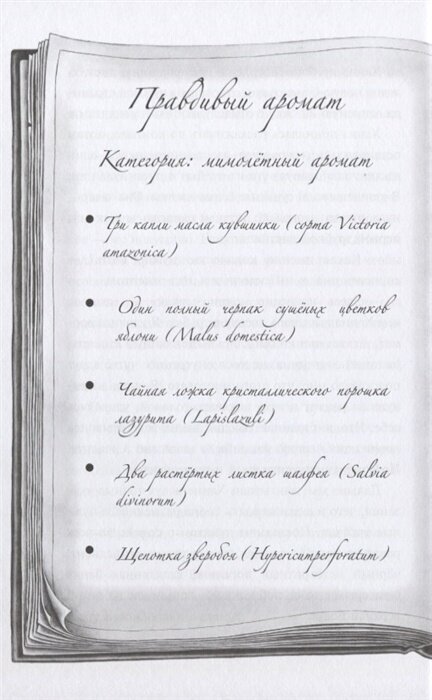 Правдивый аромат
Категория: мимолётный аромат
• Три капли масла кувшинки (сорта Victoria
amazonica)
• Один полный черпак сушёных цветков
яблони (Malus domestica)
• Чайная ложка кристаллического порошка
лазурита (Lapislazuli)
• Два растёртых листка шалфея (Salvia
divinorum)
• Щепотка зверобоя (Hypericumperforatum)